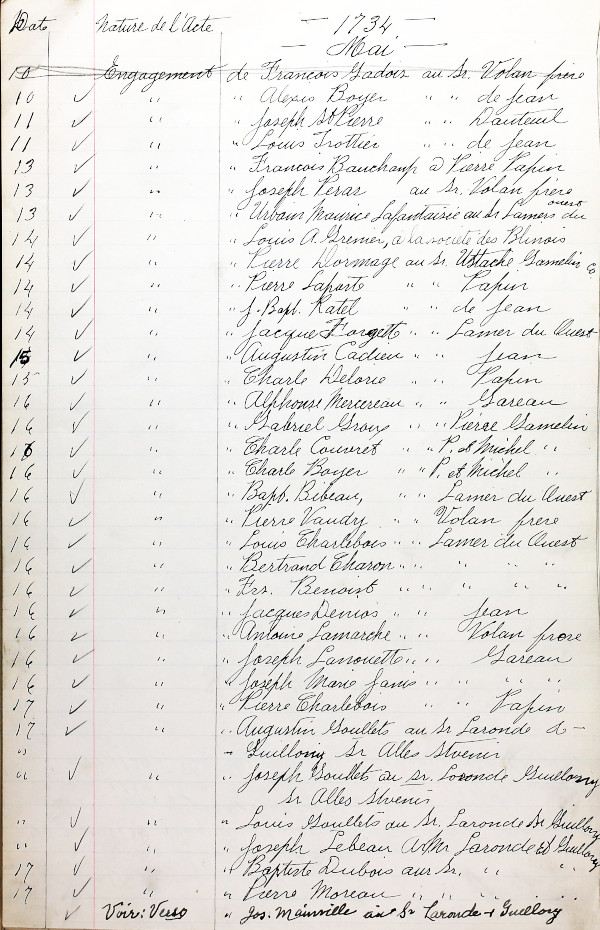 Date Nature de l'Acte — 1734 —
— Mai —
10 Engagement de Francois Gadois au Sr. Volan frère
10 ✓ " " Alexis Boyer " " de Jean
11 ✓ " " Joseph St Pierre " " Dauteuil
11 ✓ " " Louis Trottier " " de Jean
13 ✓ " " Francois Bauchamp à Pierre Papin
13 ✓ " " Joseph Perar au Sr. Volan frère
13 ✓ " " Urbain Maurice Lafantaisie au Sr Lamers du ouest
14 ✓ " " Louis A. Grenier, à la societé des Illinois
14 ✓ " " Pierre Dormage au Sr. Ustache Gamelin Co
14 ✓ " " Pierre Laporte " " Papin
14 ✓ " " J. Bapt. Ratel " " de Jean
14 ✓ " " Jacque Forgett " " Lamer du Ouest
15 ✓ " " Augustin Cadieu " " Jean
15 ✓ " " Charle Delorie " " Papin
16 ✓ " " Alphonse Mercereau " " Gareau
16 ✓ " " Gabriel Groux " " Pierre Gamelin
16 ✓ " " Charle Couvret " " P. et Michel "
16 ✓ " " Charle Boyer " " P. et Michel "
16 ✓ " " Bapt. Bibeau, " " Lamer du Ouest
16 ✓ " " Pierre Vaudry " " Volan frere
16 ✓ " " Louis Charlebois " " Lamer du Ouest
16 ✓ " " Bertrand Charon " " " " "
16 ✓ " " Frs. Benoist " " " " "
16 ✓ " " Jacques Denios " " Jean
16 ✓ " " Antoine Lamarche " " Volan frere
16 ✓ " " Joseph Lanouette " " Gareau
16 ✓ " " Joseph Marie Janis " " " "
17 ✓ " " Pierre Charlebois " " Papin
17 ✓ " " Augustin Goullets au Sr Laronde &
" Guillory Sr Alles
" ✓ " " Joseph Goullets au Sr. Laronde Guillory
Sr Alles
" ✓ " " Louis Goullets au Sr. Laronde & Guillory
" ✓ " " Joseph Lebeau A Mr Laronde & Guillory
17 ✓ " " Baptiste Dubois aux Sr. " "
17 ✓ " " Pierre Moreau " " " "
✓ Voir: Verso " Jos. Mainville aux Sr Laronde + Guillory